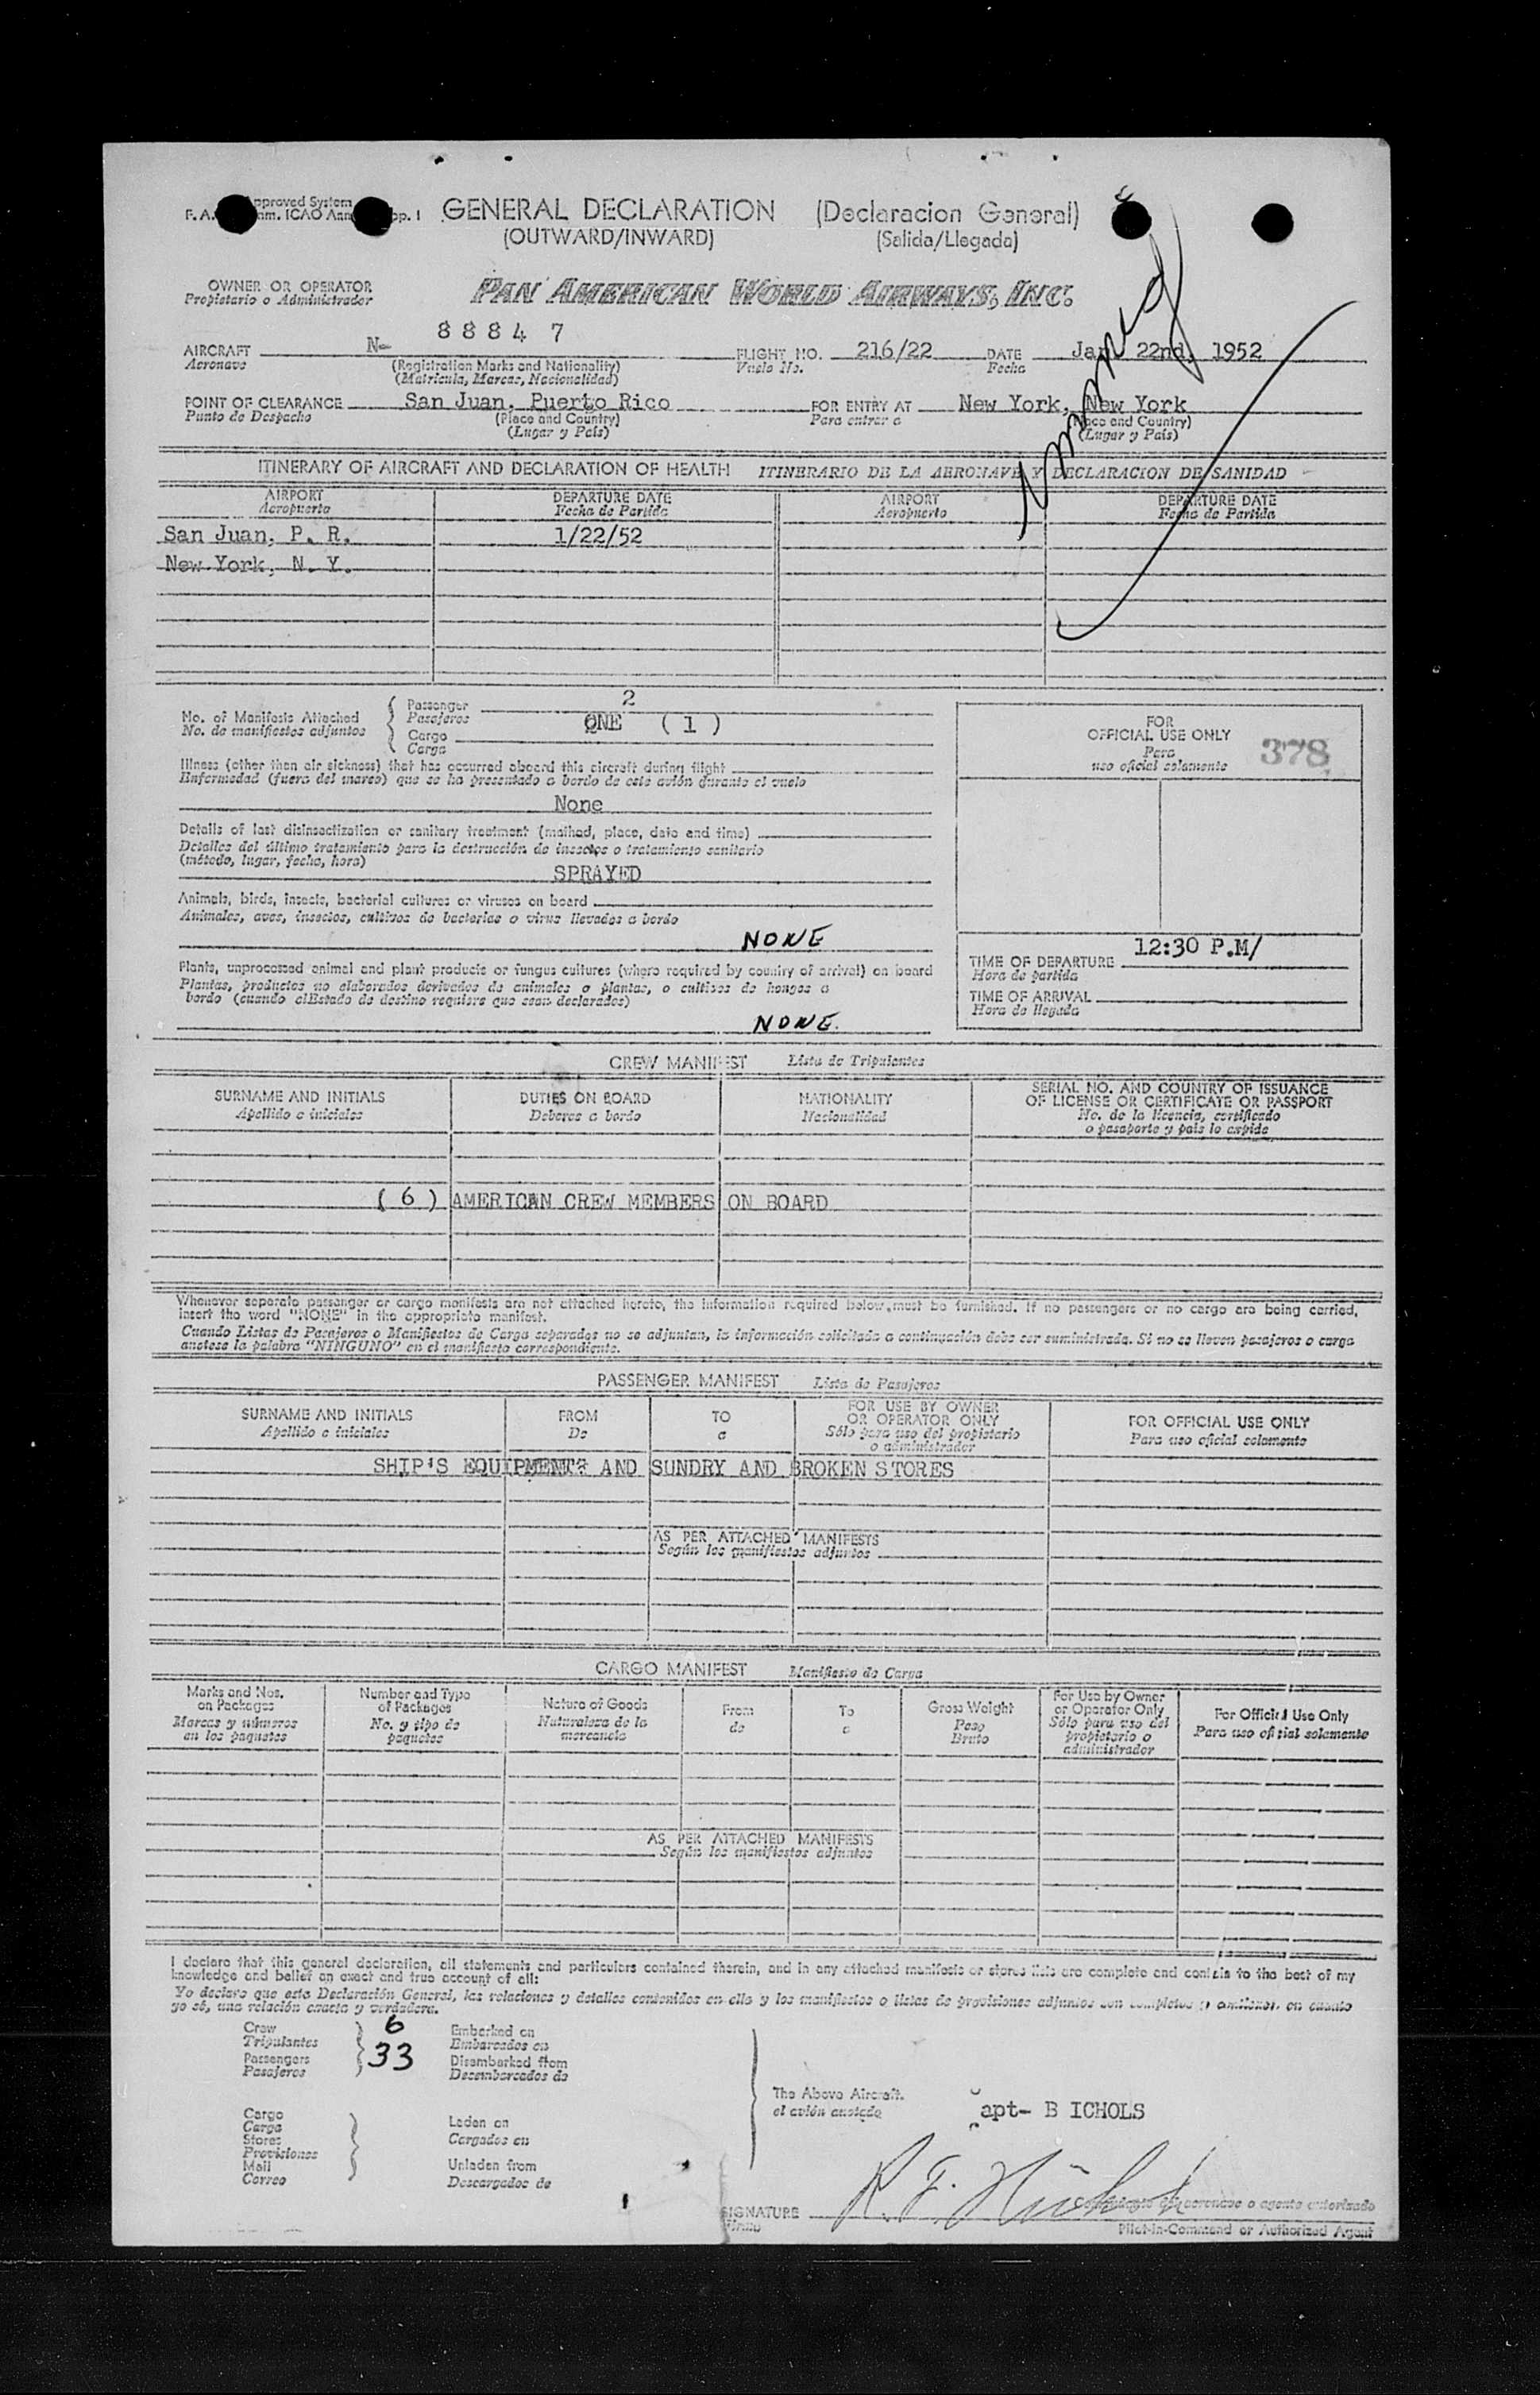 pproved System
F. A. m. ICAO Ann pp. I
GENERAL DECLARATION (Declaracion General)
(OUTWARD/INWARD) (Salida/Llegada)
OWNER OR OPERATOR
Propietario o Administrador
PAN AMERICAN WORLD AIRWAYS, INC.
AIRCRAFT N- 8 8 8 4 7 FLIGHT NO. 216/22 DATE Jan 22nd, 1952
Aeronave (Registration Marks and Nationality) Vuelo No. Fecha
(Matricula, Marcas, Nacionalidad)
POINT OF CLEARANCE San Juan, Puerto Rico FOR ENTRY AT New York, New York
Punto de Despacho (Place and Country) Para entrar a (Place and Country)
(Lugar y País) (Lugar y País)
ITINERARY OF AIRCRAFT AND DECLARATION OF HEALTH ITINERARIO DE LA AERONAVE Y DECLARACION DE SANIDAD
AIRPORT DEPARTURE DATE AIRPORT DEPARTURE DATE
Aeropuerto Fecha de Partida Aeropuerto Fecha de Partida
San Juan, P. R. 1/22/52
New York, N. Y.
No. of Manifests Attached
No. de manifiestos adjuntos
Passenger 2
Pasajeros ONE ( 1 )
Cargo
Carga
Illness (other than air sickness) that has occurred aboard this aircraft during flight
Enfermedad (fuera del mareo) que se ha presentado a bordo de este avión durante el vuelo
None
Details of last disinsectization or sanitary treatment (method, place, date and time)
Detalles del último tratamiento para la destrucción de insectos o tratamiento sanitario
(método, lugar, fecha, hora)
SPRAYED
Animals, birds, insects, bacterial cultures or viruses on board
Animales, aves, insectos, cultivos de bacterias o virus llevados a bordo
NONE
Plants, unprocessed animal and plant products or fungus cultures (where required by country of arrival) on board
Plantas, productos no elaborados derivados de animales o plantas, o cultivos de hongos a
bordo (cuando elEstado de destino requiere que sean declarados)
NONE.
FOR
OFFICIAL USE ONLY
Para
uso oficial solamente
378
TIME OF DEPARTURE 12:30 P.M/
Hora de partida
TIME OF ARRIVAL
Hora de llegada
CREW MANIFEST Lista de Tripulantes
SURNAME AND INITIALS DUTIES ON BOARD NATIONALITY SERIAL NO. AND COUNTRY OF ISSUANCE
Apellido e iniciales Deberes a bordo Nacionalidad OF LICENSE OR CERTIFICATE OR PASSPORT
No. de la licencia, certificado
o pasaporte y país lo expide
( 6 ) AMERICAN CREW MEMBERS ON BOARD
Whenever separate passenger or cargo manifests are not attached hereto, the information required below must be furnished. If no passengers or no cargo are being carried,
insert the word "NONE" in the appropriate manifest.
Cuando Listas de Pasajeros o Manifiestos de Carga separados no se adjuntan, la información solicitada a continuación debe ser suministrada. Si no se lleven pasajeros o carga
anotese la palabra "NINGUNO" en el manifiesto correspondiente.
PASSENGER MANIFEST Lista de Pasajeros
SURNAME AND INITIALS FROM TO FOR USE BY OWNER OR OPERATOR ONLY FOR OFFICIAL USE ONLY
Apellido e iniciales De a Sólo para uso del propietario o administrador Para uso oficial solamente
SHIP'S EQUIPMENT AND SUNDRY AND BROKEN STORES
AS PER ATTACHED MANIFESTS
Según los manifiestos adjuntos
CARGO MANIFEST Manifiesto de Carga
Marks and Nos. on Packages Number and Type of Packages Nature of Goods From To Gross Weight For Use by Owner or Operator Only For Official Use Only
Marcas y números en los paquetes No. y tipo de paquetes Naturaleza de la mercancía de a Peso Bruto Sólo para uso del propietario o administrador Para uso oficial solamente
AS PER ATTACHED MANIFESTS
Según los manifiestos adjuntos
I declare that this general declaration, all statements and particulars contained therein, and in any attached manifests or stores lists are complete and contain to the best of my
knowledge and belief an exact and true account of all:
Yo declaro que esta Declaración General, las relaciones y detalles contenidos en ella y los manifiestos o listas de provisiones adjuntos son completos y contienen, en cuanto
yo sé, una relación exacta y verdadera.
Crew 6 Embarked on
Tripulantes Embarcados en
Passengers 33 Disembarked from
Pasajeros Desembarcados de
Cargo
Carga Laden on
Stores Cargados en
Provisiones
Mail Unladen from
Correo Descargados de
The Above Aircraft.
el avión anotado
apt- B ICHOLS
SIGNATURE R. F. Nichols
Firma
Comandante de aeronave o agente autorizado
Pilot-in-Command or Authorized Agent